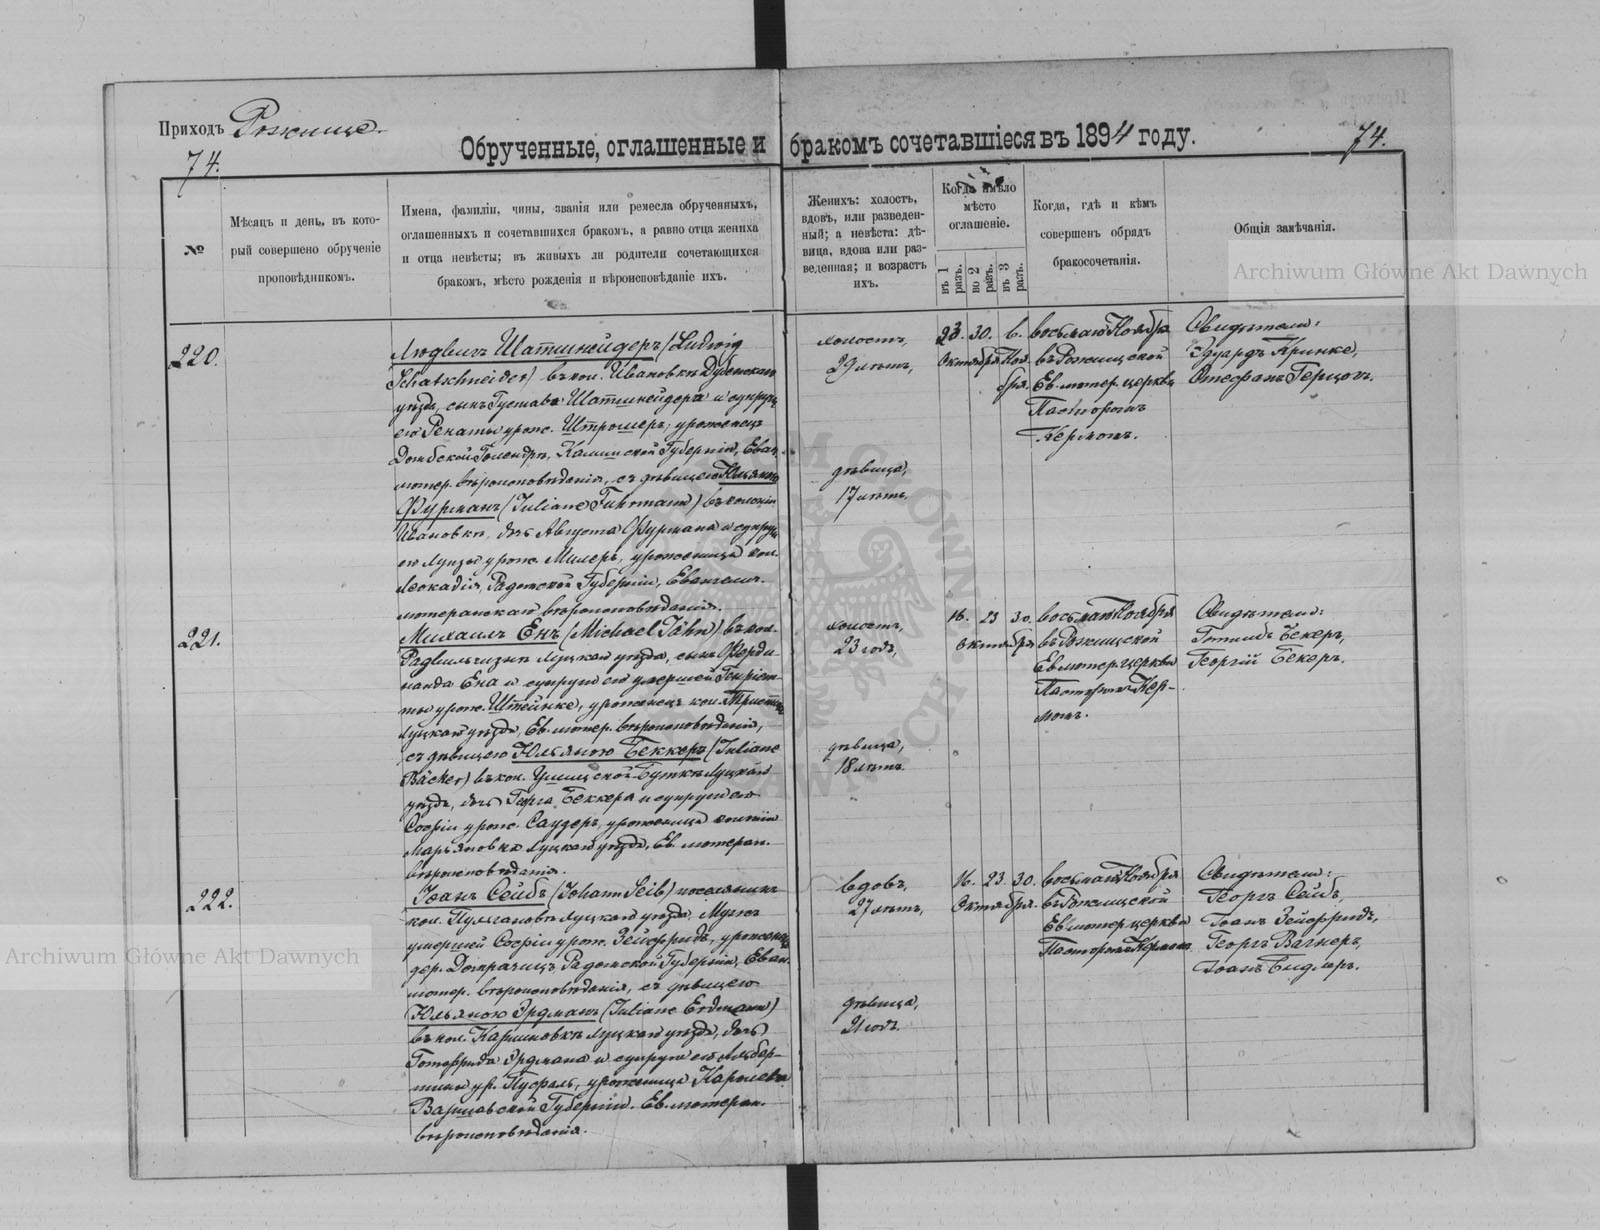 Приходъ Рожище.
74.
Обрученные, оглашенные и бракомъ сочетавшіеся въ 1894 году.
74.
№
Мѣсяцъ и день, въ кото-
рый совершено обрученіе
проповѣдникомъ.
Имена, фамиліи, чины, званія или ремесла обрученныхъ,
оглашенныхъ и сочетавшихся бракомъ, а равно отца жениха
и отца невѣсты; въ живыхъ ли родители сочетающихся
бракомъ, мѣсто рожденія и вѣроисповѣданіе ихъ.
Женихъ: холостъ,
вдовъ, или разведен-
ный; а невѣста: дѣ-
вица, вдова или раз-
веденная; и возрастъ
ихъ.
Когда имѣло
мѣсто
оглашеніе.
въ 1 разъ.
во 2 разъ.
въ 3 разъ.
Когда, гдѣ и кѣмъ
совершенъ обрядъ
бракосочетанія.
Общія замѣчанія.
Archiwum Główne Akt Dawnych
220.
Людвигъ Шатшнейдеръ (Ludwig
Schatschneider) въ кол. Ивановкѣ Дубенскаго
уѣзда, сынъ Густава Шатшнейдера и супруги
его Ренаты урож. Штрошеръ, уроженецъ
Домбской Голендръ, Калишской Губерніи, Еван.
лютер. вѣроисповѣданія, съ дѣвицею Юліяною
Фурманъ (Juliane Fuhrmann) въ колоніи
Ивановкѣ, дочь Августа Фурмана и супруги
его Луизы урож. Милеръ, уроженица кол.
Леокадія, Радомской Губерніи, Евангели.
лютеранскаго вѣроисповѣданія.
холостъ,
29 лѣтъ,
дѣвица,
17 лѣтъ.
23. 30. 6.
Октября Ноя-
бря.
восьмаго Ноября
въ Рожищской
Ев. лютер. церкви
Пасторомъ
Керномъ.
Свидѣтели:
Эдуардъ Кринке,
Стефанъ Герцогъ.
221.
Михаилъ Енъ (Michael Jähn) въ кол.
Радвильчизнѣ Луцкаго уѣзда, сынъ Ферди-
нанда Ена и супруги его умершей Генріет-
ты урож. Штейнке, уроженецъ кол.
Луцкаго уѣзда, Ев. лютер. вѣроисповѣданія,
съ дѣвицею Юльяною Беккеръ (Juliane
Bäcker) въ кол. Луцкаго
уѣзда, дочь Георга Беккера и супруги его
Софіи урож. Саудеръ, уроженица колоніи
Марьяновка Луцкаго уѣзда, Ев. лютеран.
вѣроисповѣданія.
холостъ,
23 годъ,
дѣвица,
18 лѣтъ.
16. 23 30.
Октября
восьмаго Ноября
въ Рожищской
Ев. лютер. церкви
Пасторомъ Кер-
номъ.
Свидѣтели:
Готлибъ Бекеръ,
Георгій Бекеръ.
222.
Іоанъ Сейбъ (Johann Seib) поселянинъ
кол. Луцкаго уѣзда, Мужъ
умершей Софіи урож. Зейфридъ, уроженецъ
дер. Радомской Губерніи, Еван.
лютер. вѣроисповѣданія, съ дѣвицею
Юльяною Эрдманъ (Juliane Erdmann)
въ кол. Каршовкѣ Луцкаго уѣзда, дочь
Готфрида Эрдмана и супруги его Альбер-
тины ур. Пуфаль, уроженица Каролева
Варшавской Губерніи. Ев. лютеран.
вѣроисповѣданія.
вдовъ,
27 лѣтъ,
дѣвица,
21 годъ.
16. 23. 30.
Октября.
восьмаго Ноября
въ Рожищской
Ев. лютер. церкви
Пасторомъ Керномъ.
Свидѣтели:
Георгъ Сейбъ,
Іоанъ Зейфридъ,
Георгъ Вагнеръ,
Іоанъ Бидлеръ.
Archiwum Główne Akt Dawnych